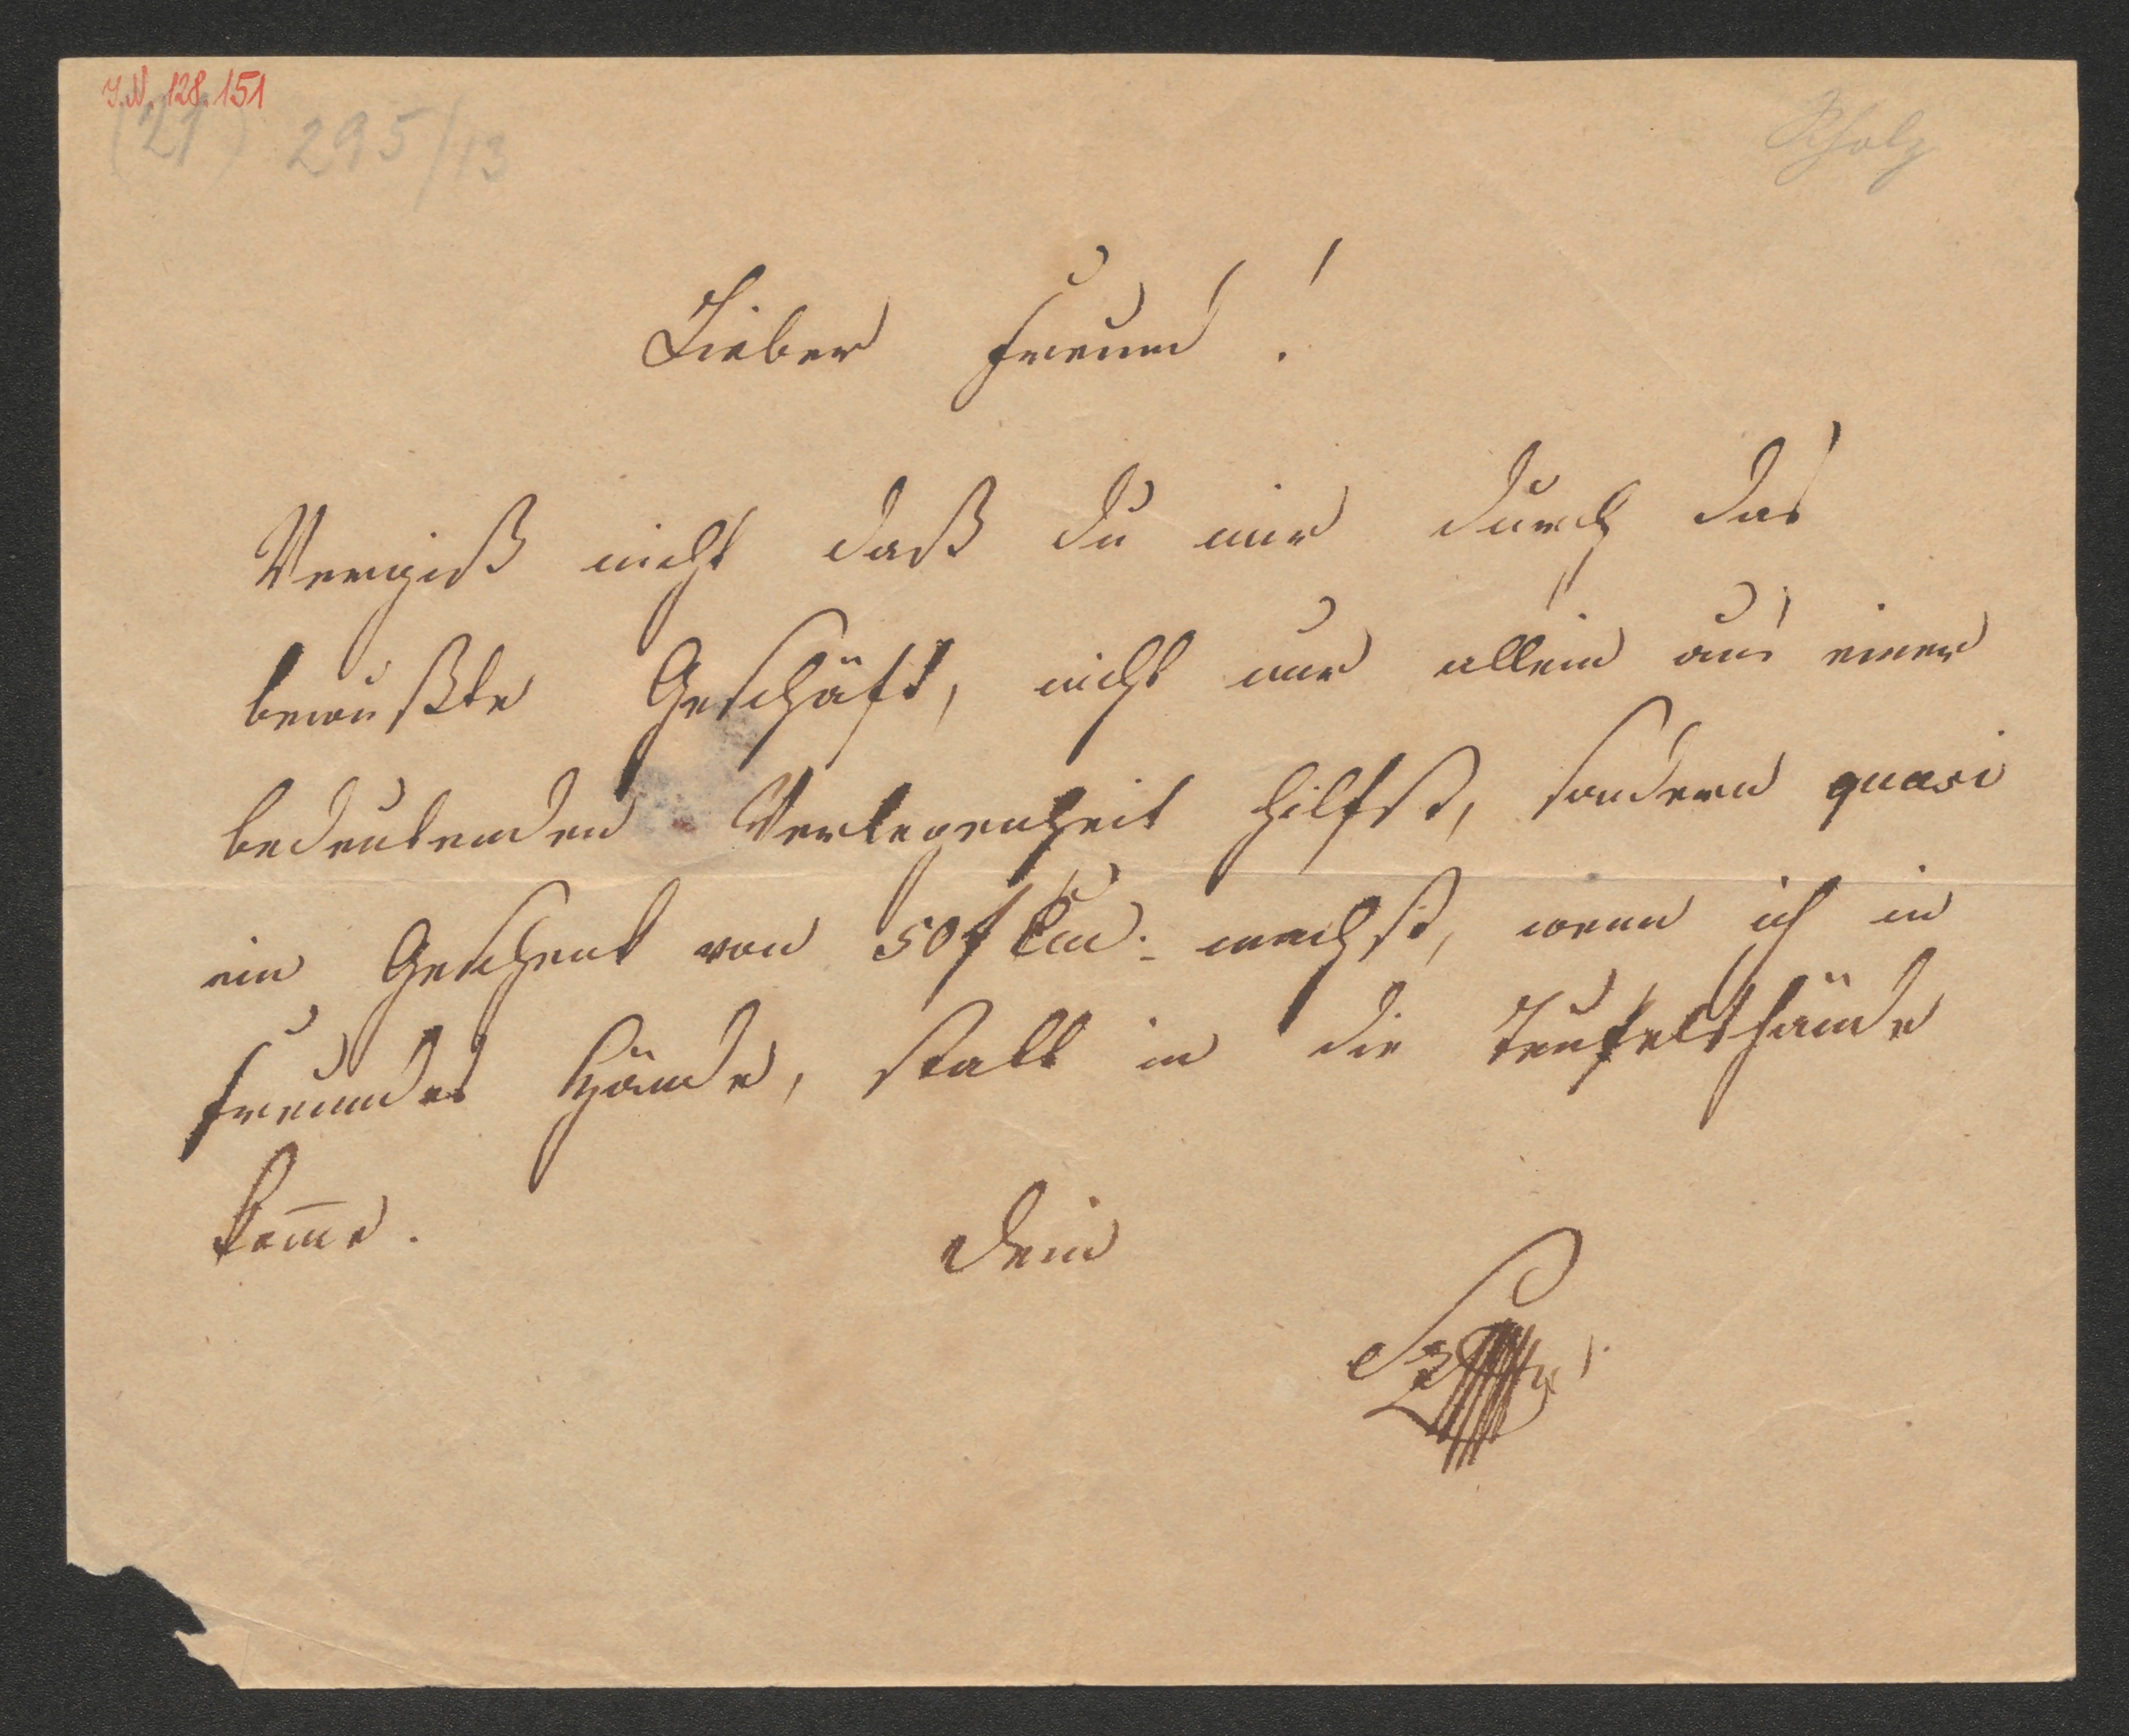 I.N. 128.151
(21) 295/13
Scholz
Lieber Freund!
Vergiß nicht daß du mir durch das
bewußte Geschäft, nicht nur allein aus einer
bedeutenden Verlegenheit hilfst, sondern quasi
ein Geschenk von 50 f machst, wenn ich in
Freundes Hände, statt in die Teufelshände
kom̅e.
Dein